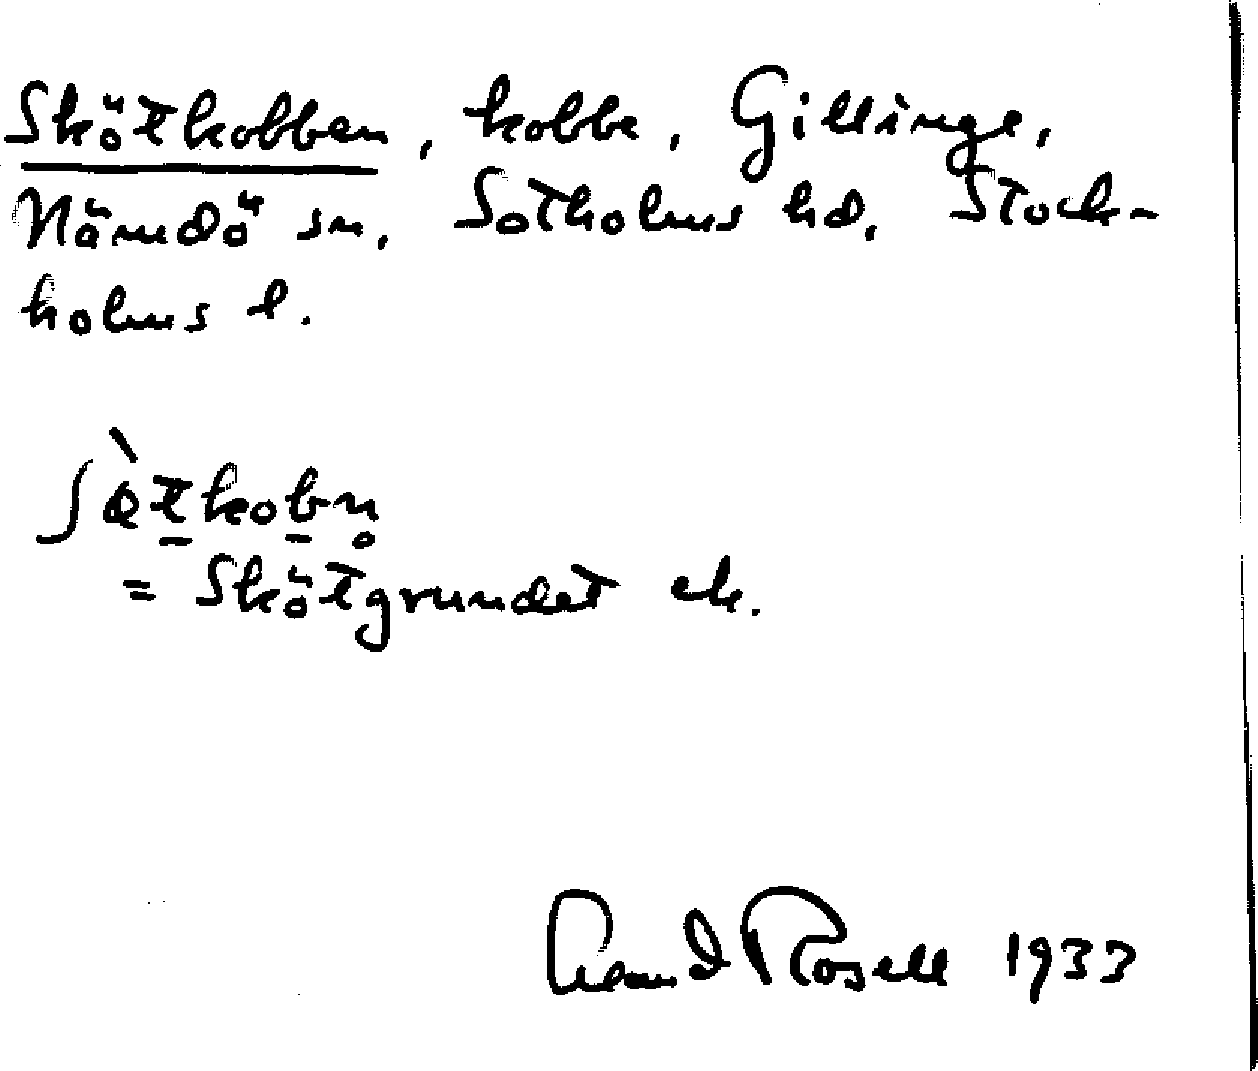 Skötkobben, kobbe, Gillinge,
Nämdö sn. Sotholms hd. Stock-
holms l.
ʃɵ̀tkobn̥
= Skötgrundet ek.
Rosell 1933